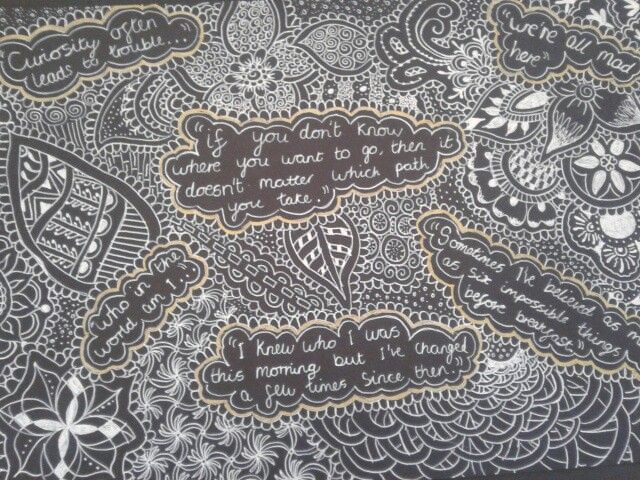 Curiosity often
leads to trouble."
"we're all mad
here"
"if you don't know
where you want to go, then it
doesn't matter which path
you take."
"Sometimes I've believed as
as six impossible things
before breakfast"
"who in the
world am I"
"I knew who I was
this morning but I've changed
a few times since then."